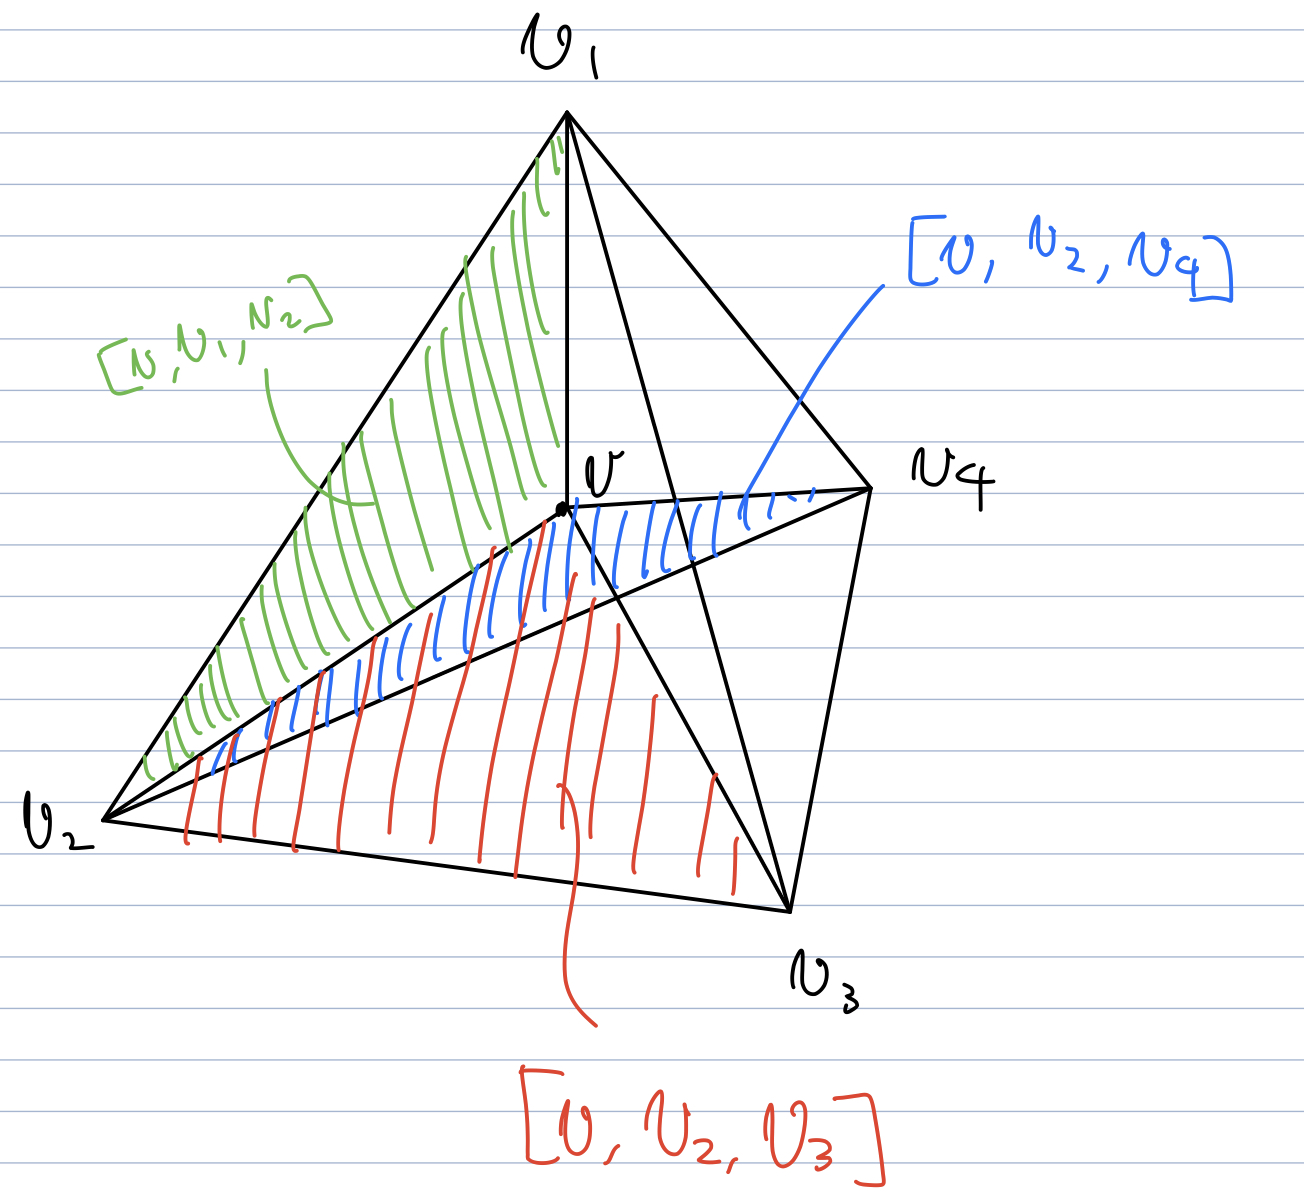 v₁
[v, v₂, v₄]
[v, v₁, v₂]
v
v₄
v₂
v₃
[v, v₂, v₃]